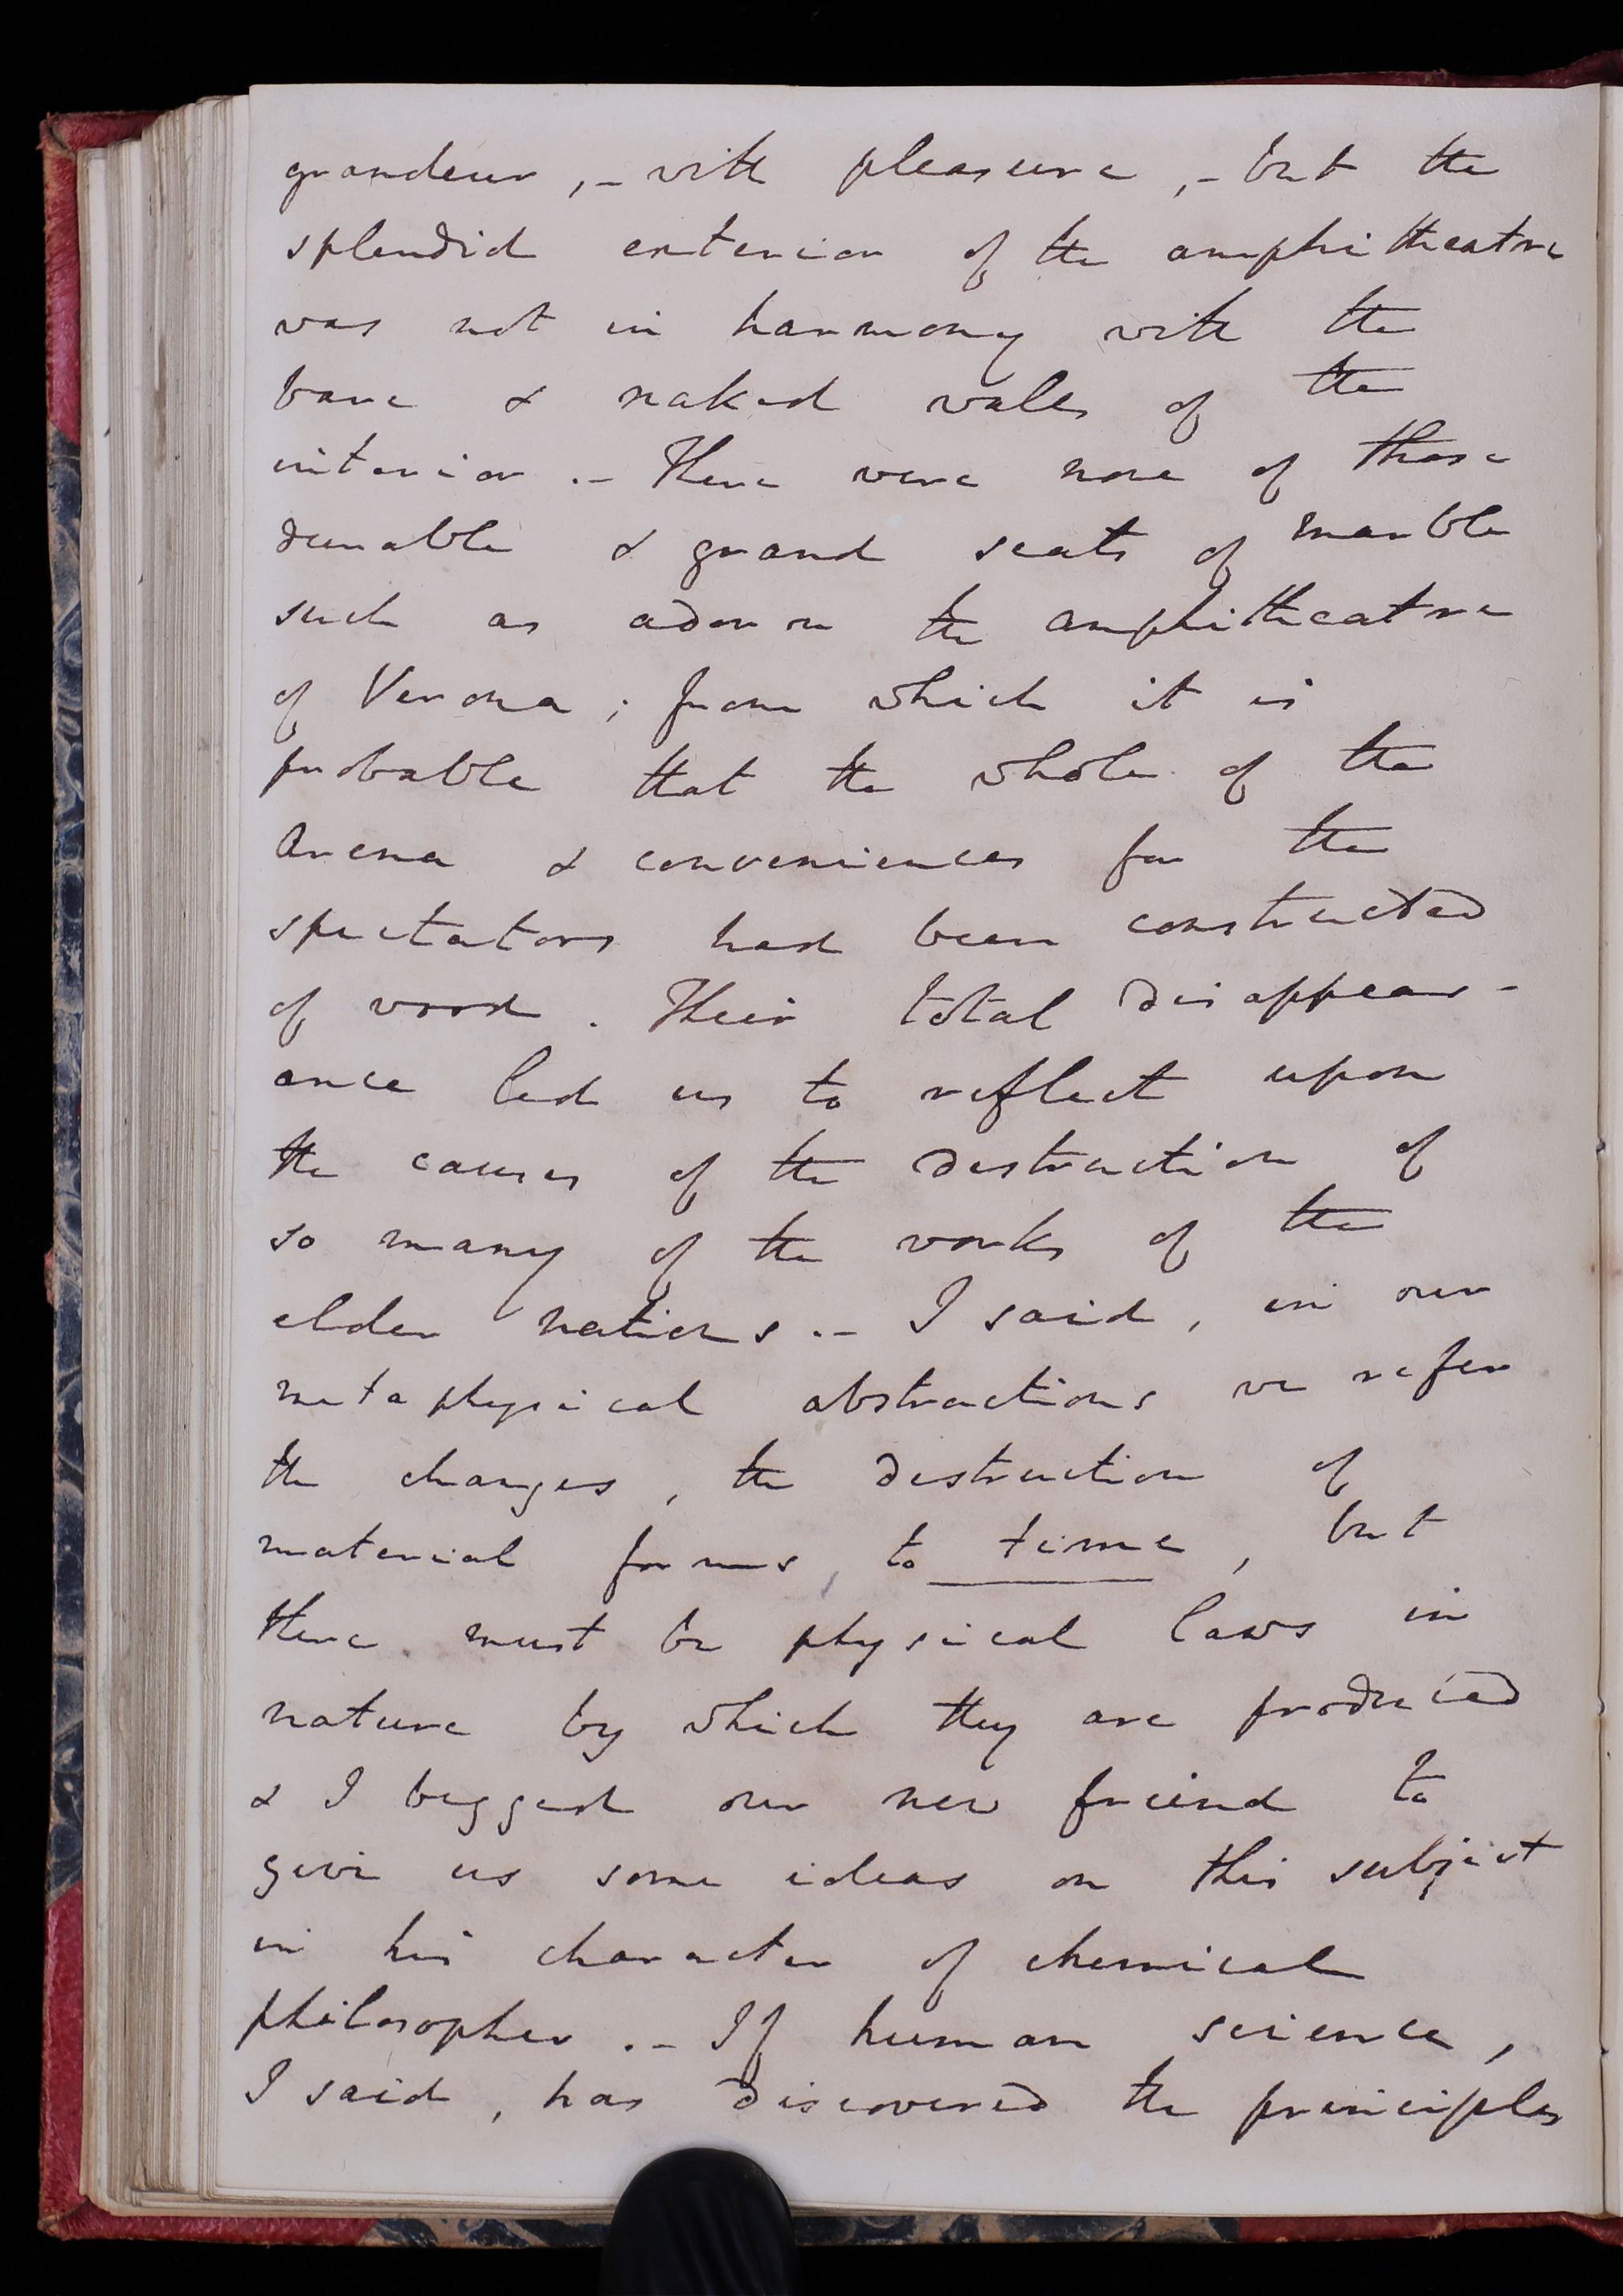 grandeur, - with pleasure, - but the
splendid exterior of the amphitheatre
was not in harmony with the
bare & naked walls of the
interior. - There were none of those
durable & grand seats of marble
such as adorn the amphitheatre
of Verona; from which it is
probable that the whole of the
Arena & conveniences for the
spectators had been constructed
of wood. Their total disappear-
ance led us to reflect upon
the causes of the destruction of
so many of the works of the
elder nations. - I said, in our
metaphysical abstractions we refer
the changes, the destruction of
material forms, to time, but
there must be physical laws in
nature by which they are produced
& I begged our new friend to
give us some ideas on this subject
in his character of chemical
philosopher. - If human science,
I said, has discovered the principles